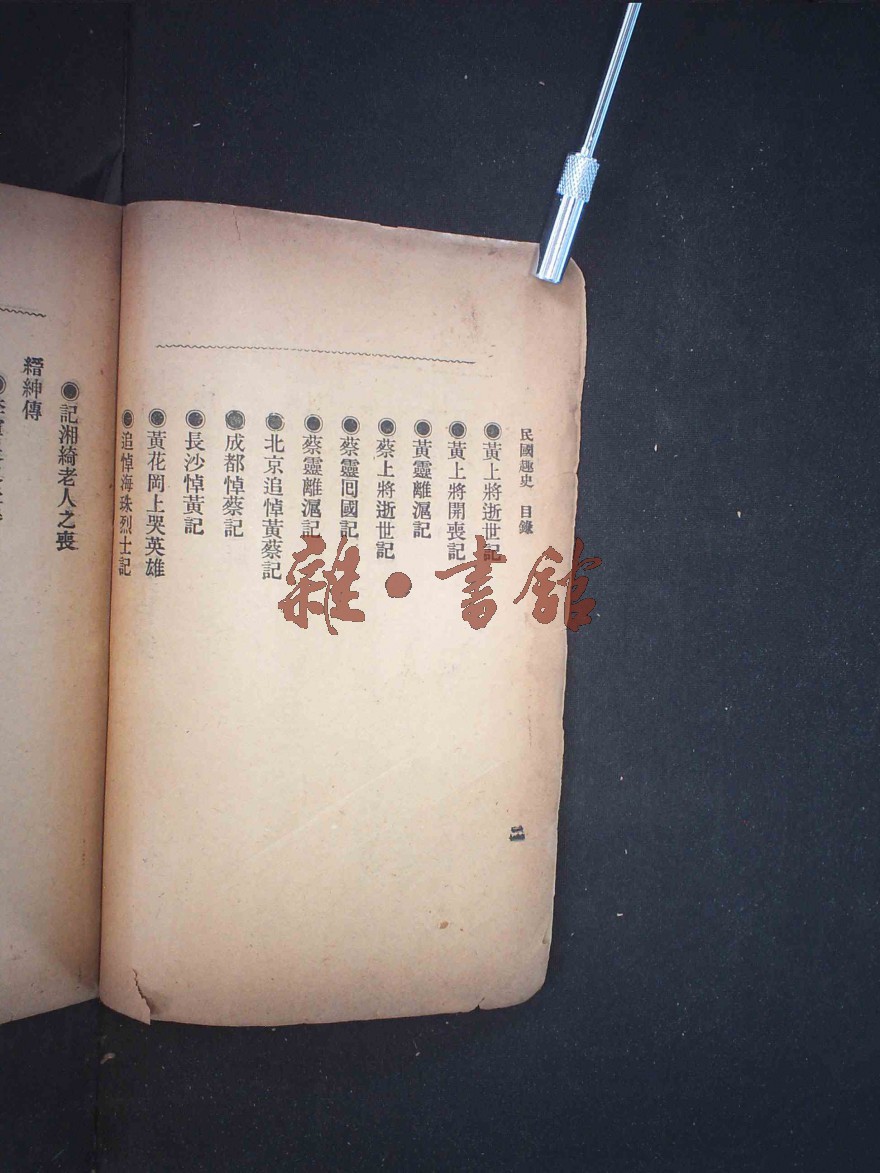 民國趣史 目錄
◉黃上將逝世記
◉黃上將開喪記
◉黃靈離滬記
◉蔡上將逝世記
◉蔡靈回國記
◉蔡靈離滬記
◉北京追悼黃蔡記
◉成都悼蔡記
◉長沙悼黃記
◉黃花岡上哭英雄
◉追悼海珠烈士記
◉記湘綺老人之喪
縉紳傳
雜·書館